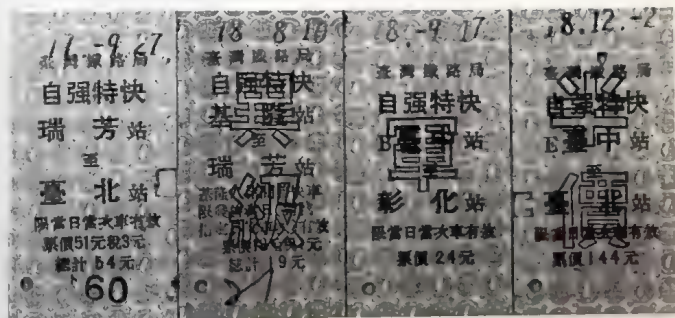 71.-9.27.
臺灣鐵路局
自强特快
瑞芳站
至
臺北站
限當日當次車有效
票價51元税3元
總計54元
60
78 8 10
臺灣鐵路局
自强特快
基隆站
至
瑞芳站
總計19元
-9.17
臺灣鐵路局
自强特快
臺中站
至
彰化站
限當日當次車有效
票價24元
軍
8.12.-2
臺灣鐵路局
自强特快
臺中站
至
臺北站
限當日當次車有效
票價144元
價